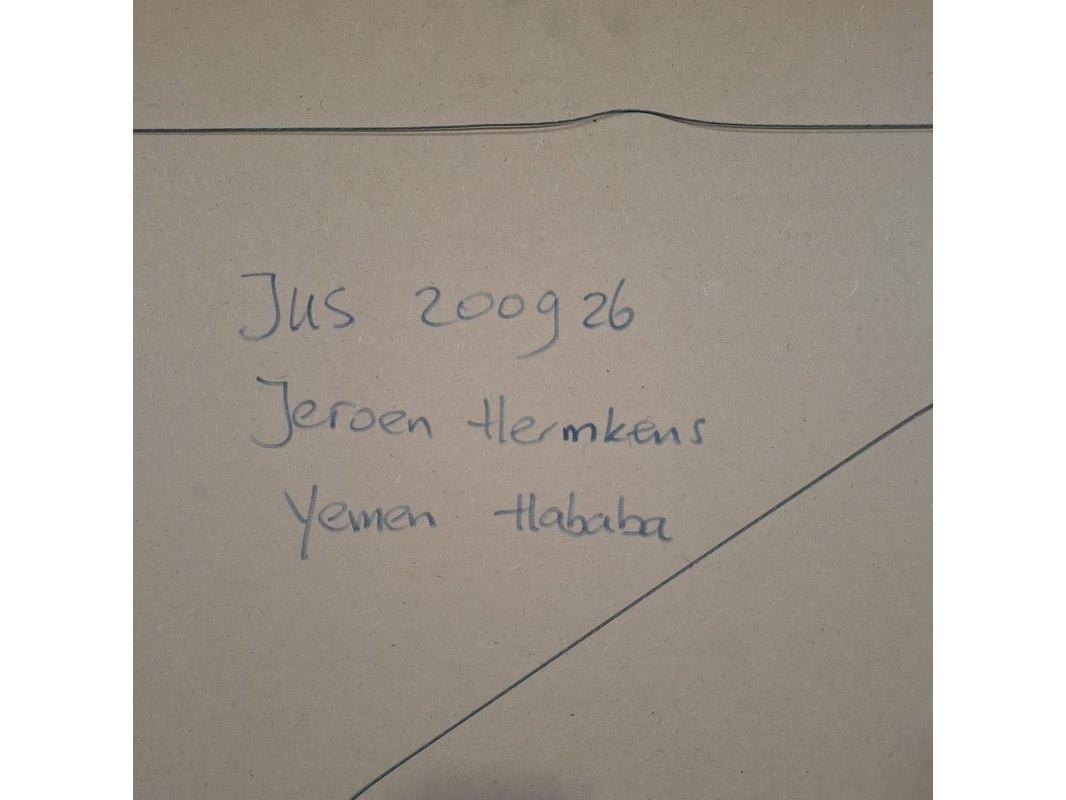 Jus 2009 26
Jeroen Hermkens
Yemen Hababa